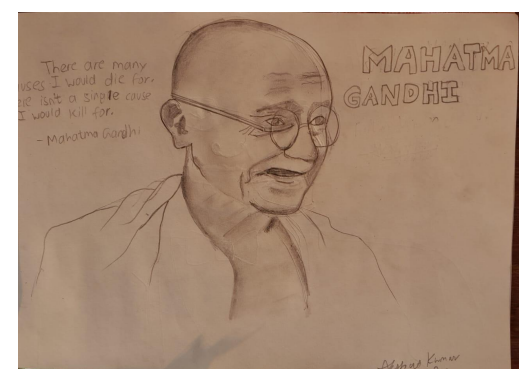 There are many
uses I would die for.
ere isn't a single cause
I would kill for.
- Mahatma Gandhi
MAHATMA
GANDHI
Kumar